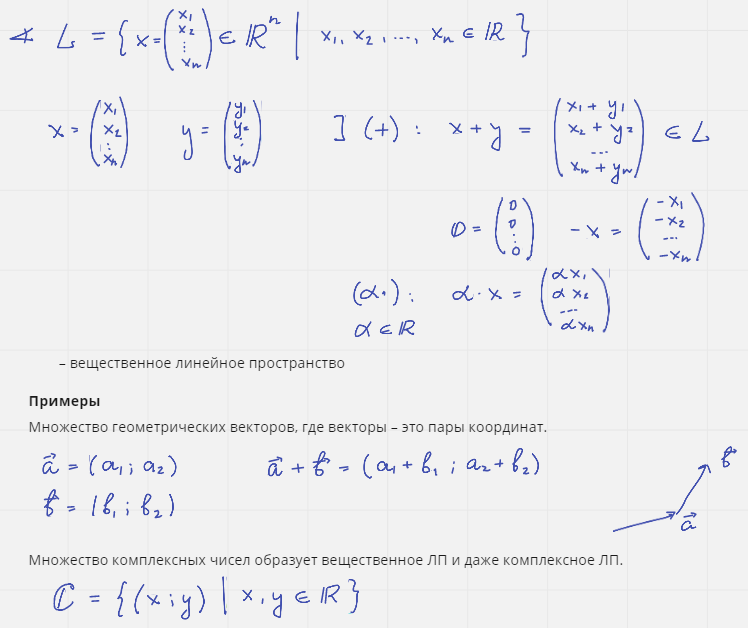 ∢ L = { x = (x₁ x₂ ⋮ xₙ) ∈ ℝⁿ | x₁, x₂, ..., xₙ ∈ ℝ }
x = (x₁ x₂ ⋮ xₙ) y = (y₁ y₂ ⋮ yₙ) ] (+) : x + y = (x₁ + y₁ x₂ + y₂ ... xₙ + yₙ) ∈ L
𝟘 = (0 0 ⋮ 0) - x = (-x₁ -x₂ ... -xₙ)
(α·) : α · x = (αx₁ αx₂ ... αxₙ)
α ∈ ℝ
– вещественное линейное пространство
Примеры
Множество геометрических векторов, где векторы – это пары координат.
a⃗ = (a₁; a₂) a⃗ + b⃗ = (a₁ + b₁ ; a₂ + b₂) b⃗
b⃗ = (b₁; b₂) a⃗
Множество комплексных чисел образует вещественное ЛП и даже комплексное ЛП.
ℂ = {(x ; y) | x, y ∈ ℝ}